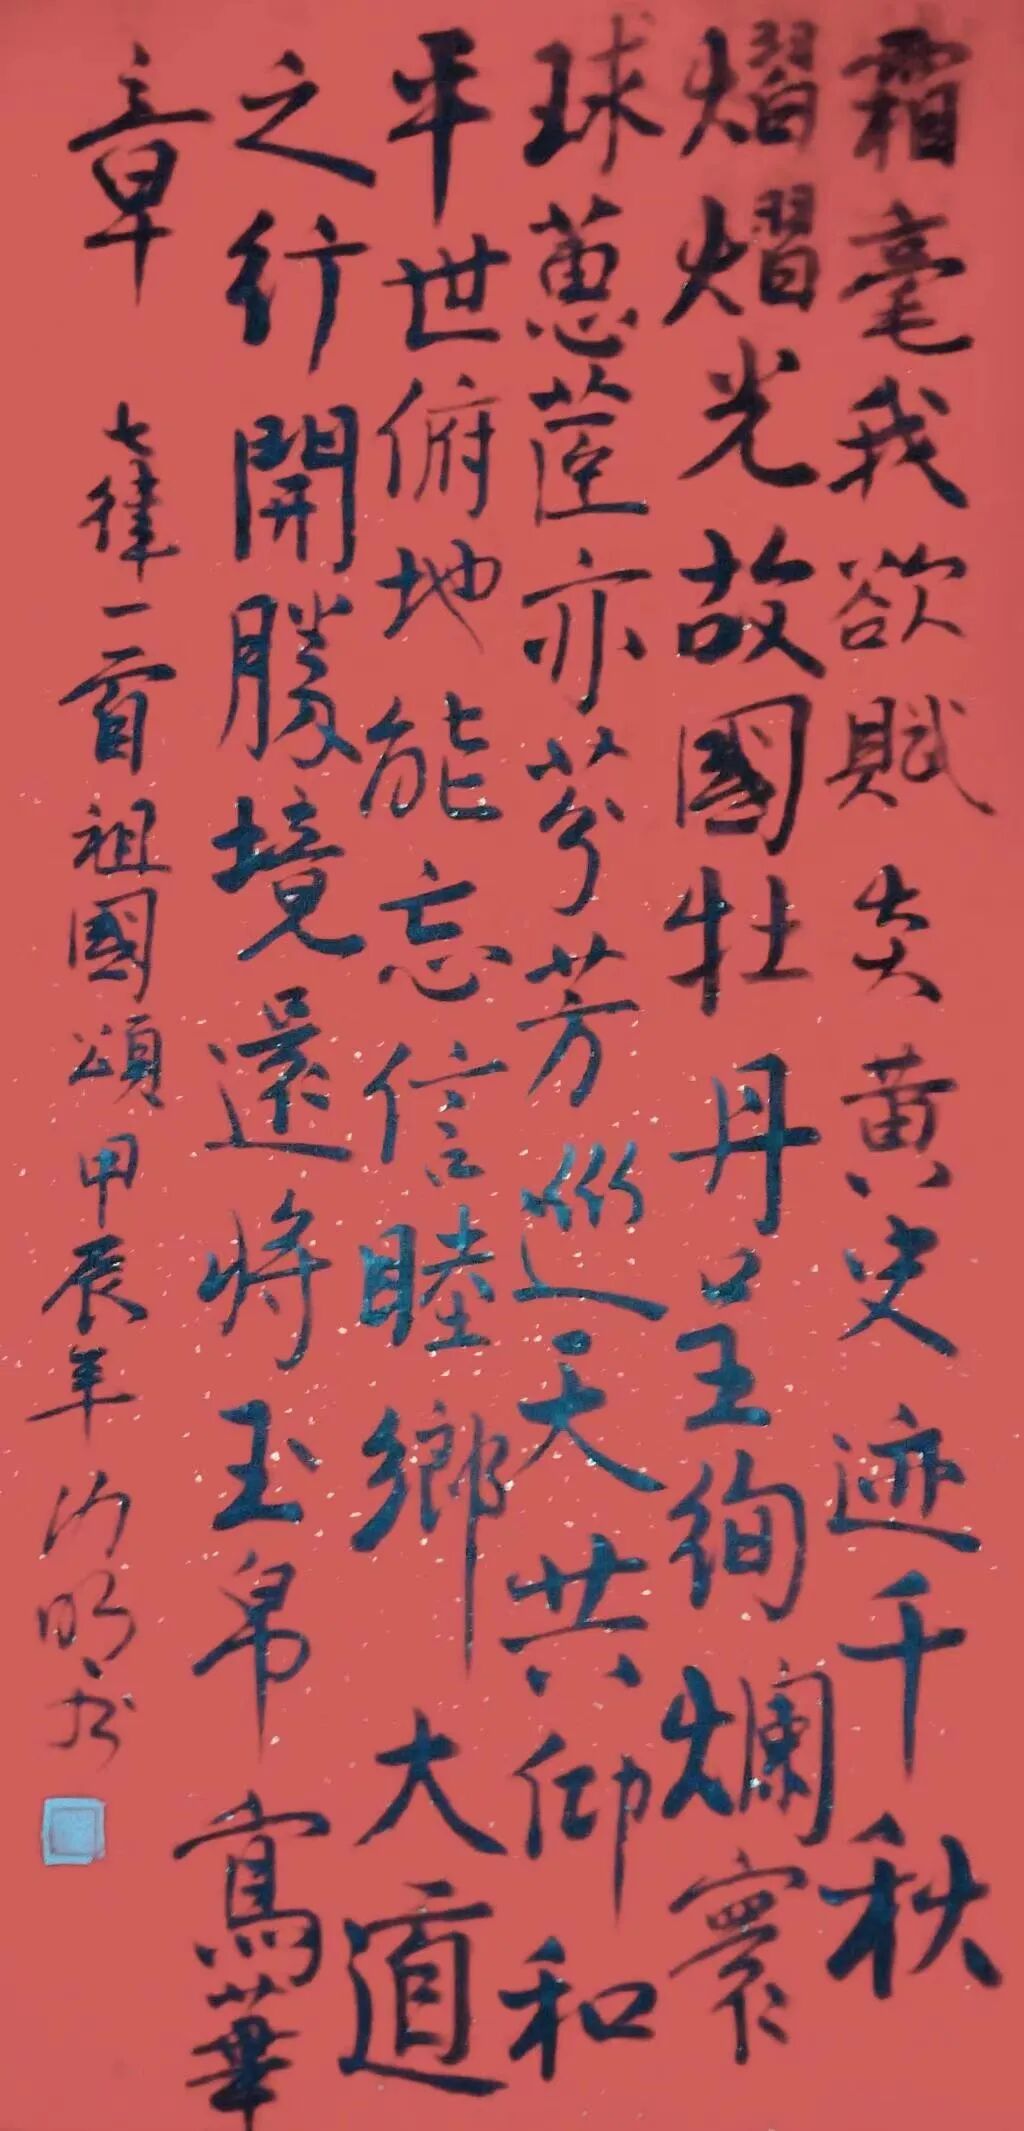 霜毫我欲賦炎黄史迹千秋
熠熠光故國牡丹呈絢爛寰
球蕙茝亦芬芳巡天共仰和
平世俯地能忘信睦鄉大道
之行開勝境還將玉帛寫華
章
七律一首祖國頌甲辰年沙明书